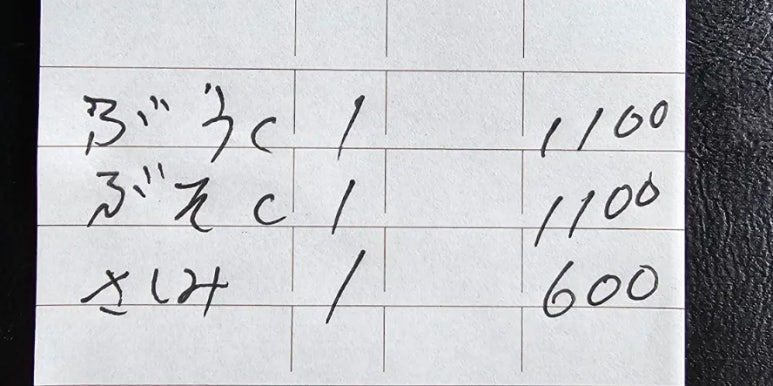 ぶうc 1 1100
ぶそc 1 1100
さしみ 1 600